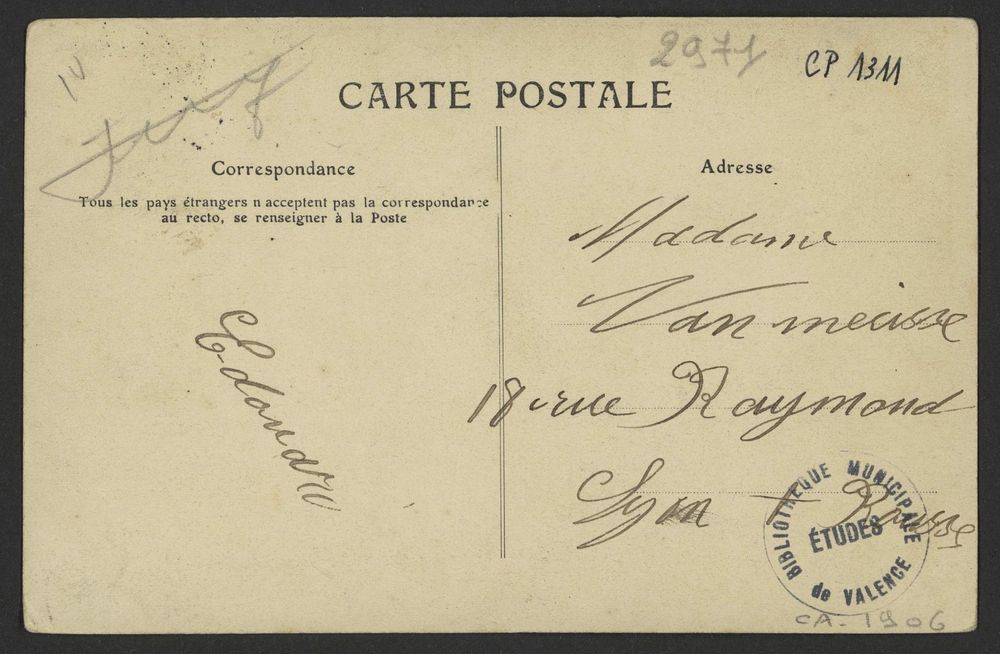 2971
CP 1311
CARTE POSTALE
Correspondance
Tous les pays étrangers n acceptent pas la correspondance
au recto, se renseigner à la Poste
Edouard
Adresse
Madame
Van meusse
18 rue Raymond
Lyon
BIBLIOTHÈQUE MUNICIPALE
ÉTUDES
de VALENCE
CA-1906